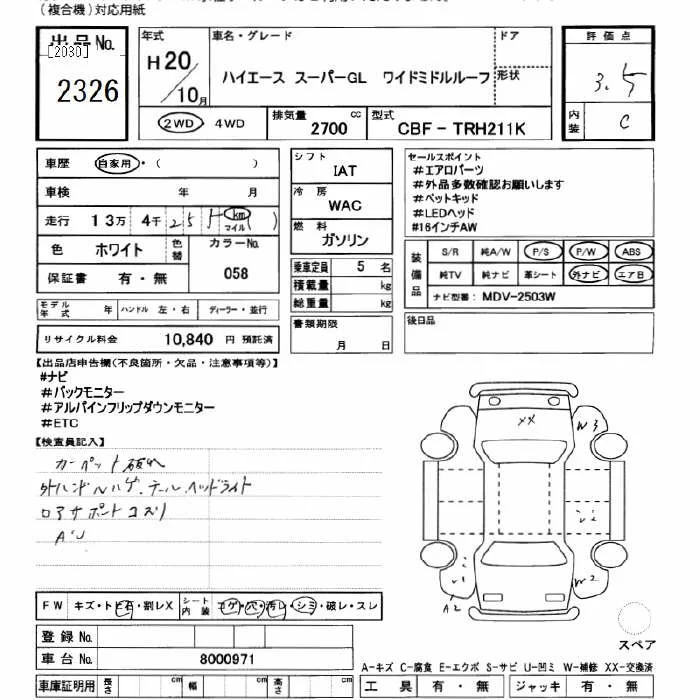 (複合機)対応用紙
出品No.
[2030]
2326
年式
H20/10月
車名・グレード
ハイエース スーパーGL ワイドミドルルーフ
ドア
形状
評価点
3.5
内装
C
2WD 4WD
排気量 2700 cc
型式 CBF-TRH211K
車歴 自家用・( )
車検 年 月
走行 13万 4千 255 km マイル ( )
色 ホワイト 色替
カラーNo.
058
保証書 有・無
モデル年式 年 ハンドル 左・右 ディーラー・並行
リサイクル料金 10,840 円 預託済
シフト
IAT
冷房
WAC
燃料
ガソリン
乗車定員 5 名
積載量 kg
総重量 kg
書類期限
月 日
セールスポイント
#エアロパーツ
#外品多数確認お願いします
#ベットキッド
#LEDヘッド
#16インチAW
装備品
S/R 純A/W P/S P/W ABS
純TV 純ナビ 革シート 外ナビ エア日
ナビ型番: MDV-2503W
後日品
【出品店申告欄(不良箇所・欠品・注意事項等)】
#ナビ
#バックモニター
#アルパインフリップダウンモニター
#ETC
【検査員記入】
外ハンドル ハゲ・テール、ヘッドライト
ロアサポートコスリ
XX
W3
W2
A2
FW キズ・トビ石・割レX シート内装 コゲ・穴・汚レ・シミ・破レ・スレ
登録No.
車台No. 8000971
車庫証明用 長さ cm 幅 cm 高さ cm
スペア
A-キズ C-腐食 E-エクボ S-サビ U-凹ミ W-補修 XX-交換済
工具 有・無 ジャッキ 有・無